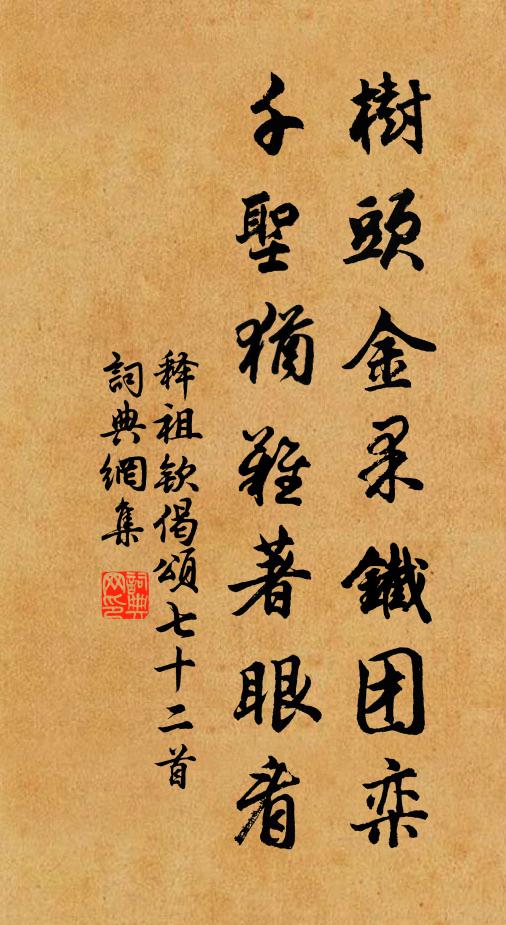 樹頭金果鐵团栾
千聖猶難著眼看
释祖欽偈頌七十二首
詞典網集
詞典网印